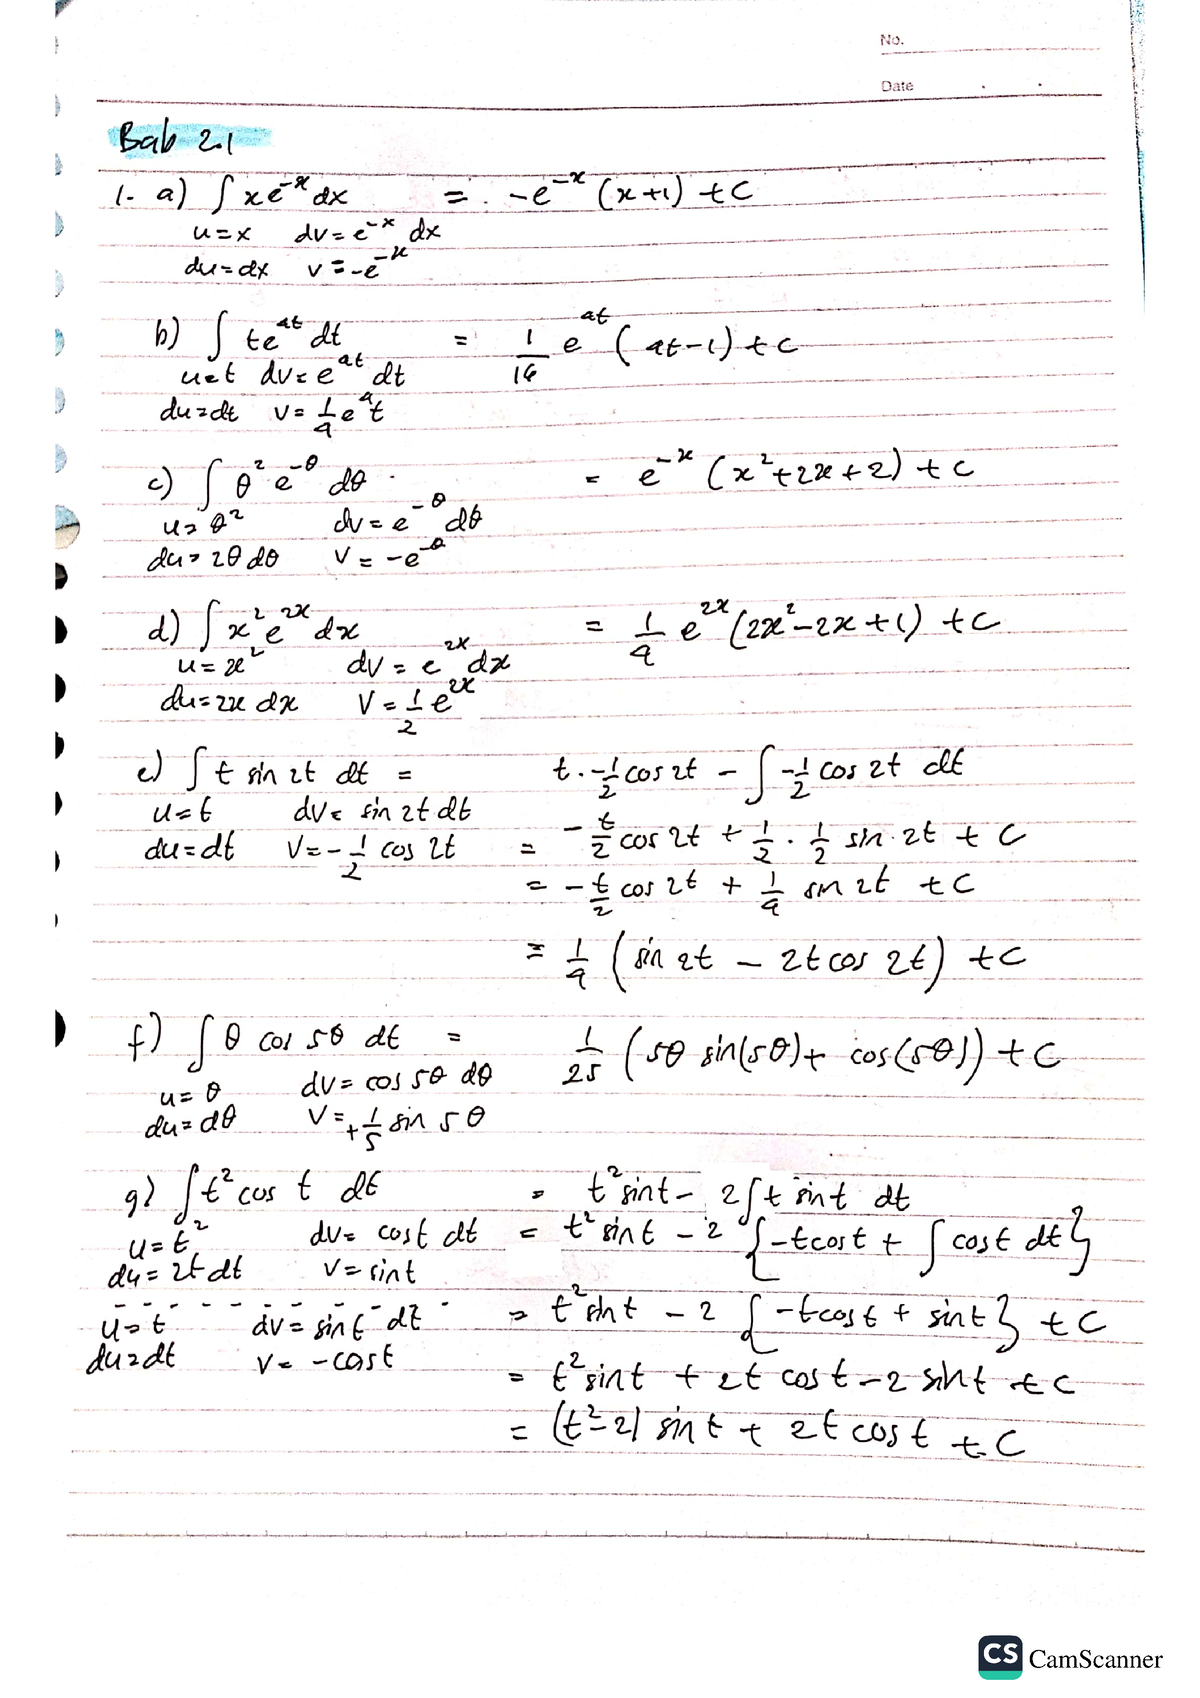 No.
Date
Bab 2.1
1. a) ∫ xe^-x dx = -e^-x (x+1) + C
u=x dv = e^-x dx
du=dx v = -e^-x
b) ∫ te^4t dt = 1/16 e^4t (4t-1) + C
u=t dv = e^4t dt
du=dt v = 1/4 e^4t
c) ∫ θ² e^-θ dθ = e^-x (x²+2x+2) + C
u = θ² dv = e^-θ dθ
du = 2θ dθ v = -e^-θ
d) ∫ x² e^2x dx = 1/4 e^2x (2x²-2x+1) + C
u = x² dv = e^2x dx
du = 2x dx v = 1/2 e^2x
e) ∫ t sin 2t dt = t . -1/2 cos 2t - ∫ -1/2 cos 2t dt
u=t dv = sin 2t dt
du=dt v = -1/2 cos 2t = -t/2 cos 2t + 1/2 . 1/2 sin 2t + C
= -t/2 cos 2t + 1/4 sin 2t + C
= 1/4 (sin 2t - 2t cos 2t) + C
f) ∫ θ cos 5θ dt = 1/25 (5θ sin(5θ) + cos(5θ)) + C
u = θ dv = cos 5θ dθ
du = dθ v = +1/5 sin 5θ
g) ∫ t² cos t dt = t² sin t - 2∫ t sin t dt
u = t² dv = cos t dt = t² sin t - 2 {-t cos t + ∫ cos t dt}
du = 2t dt v = sin t
u=t dv = sin t dt = t² sin t - 2 {-t cos t + sin t} + C
du=dt v = -cos t = t² sin t + 2t cos t - 2 sin t + C
= (t²-2) sin t + 2t cos t + C
CS CamScanner